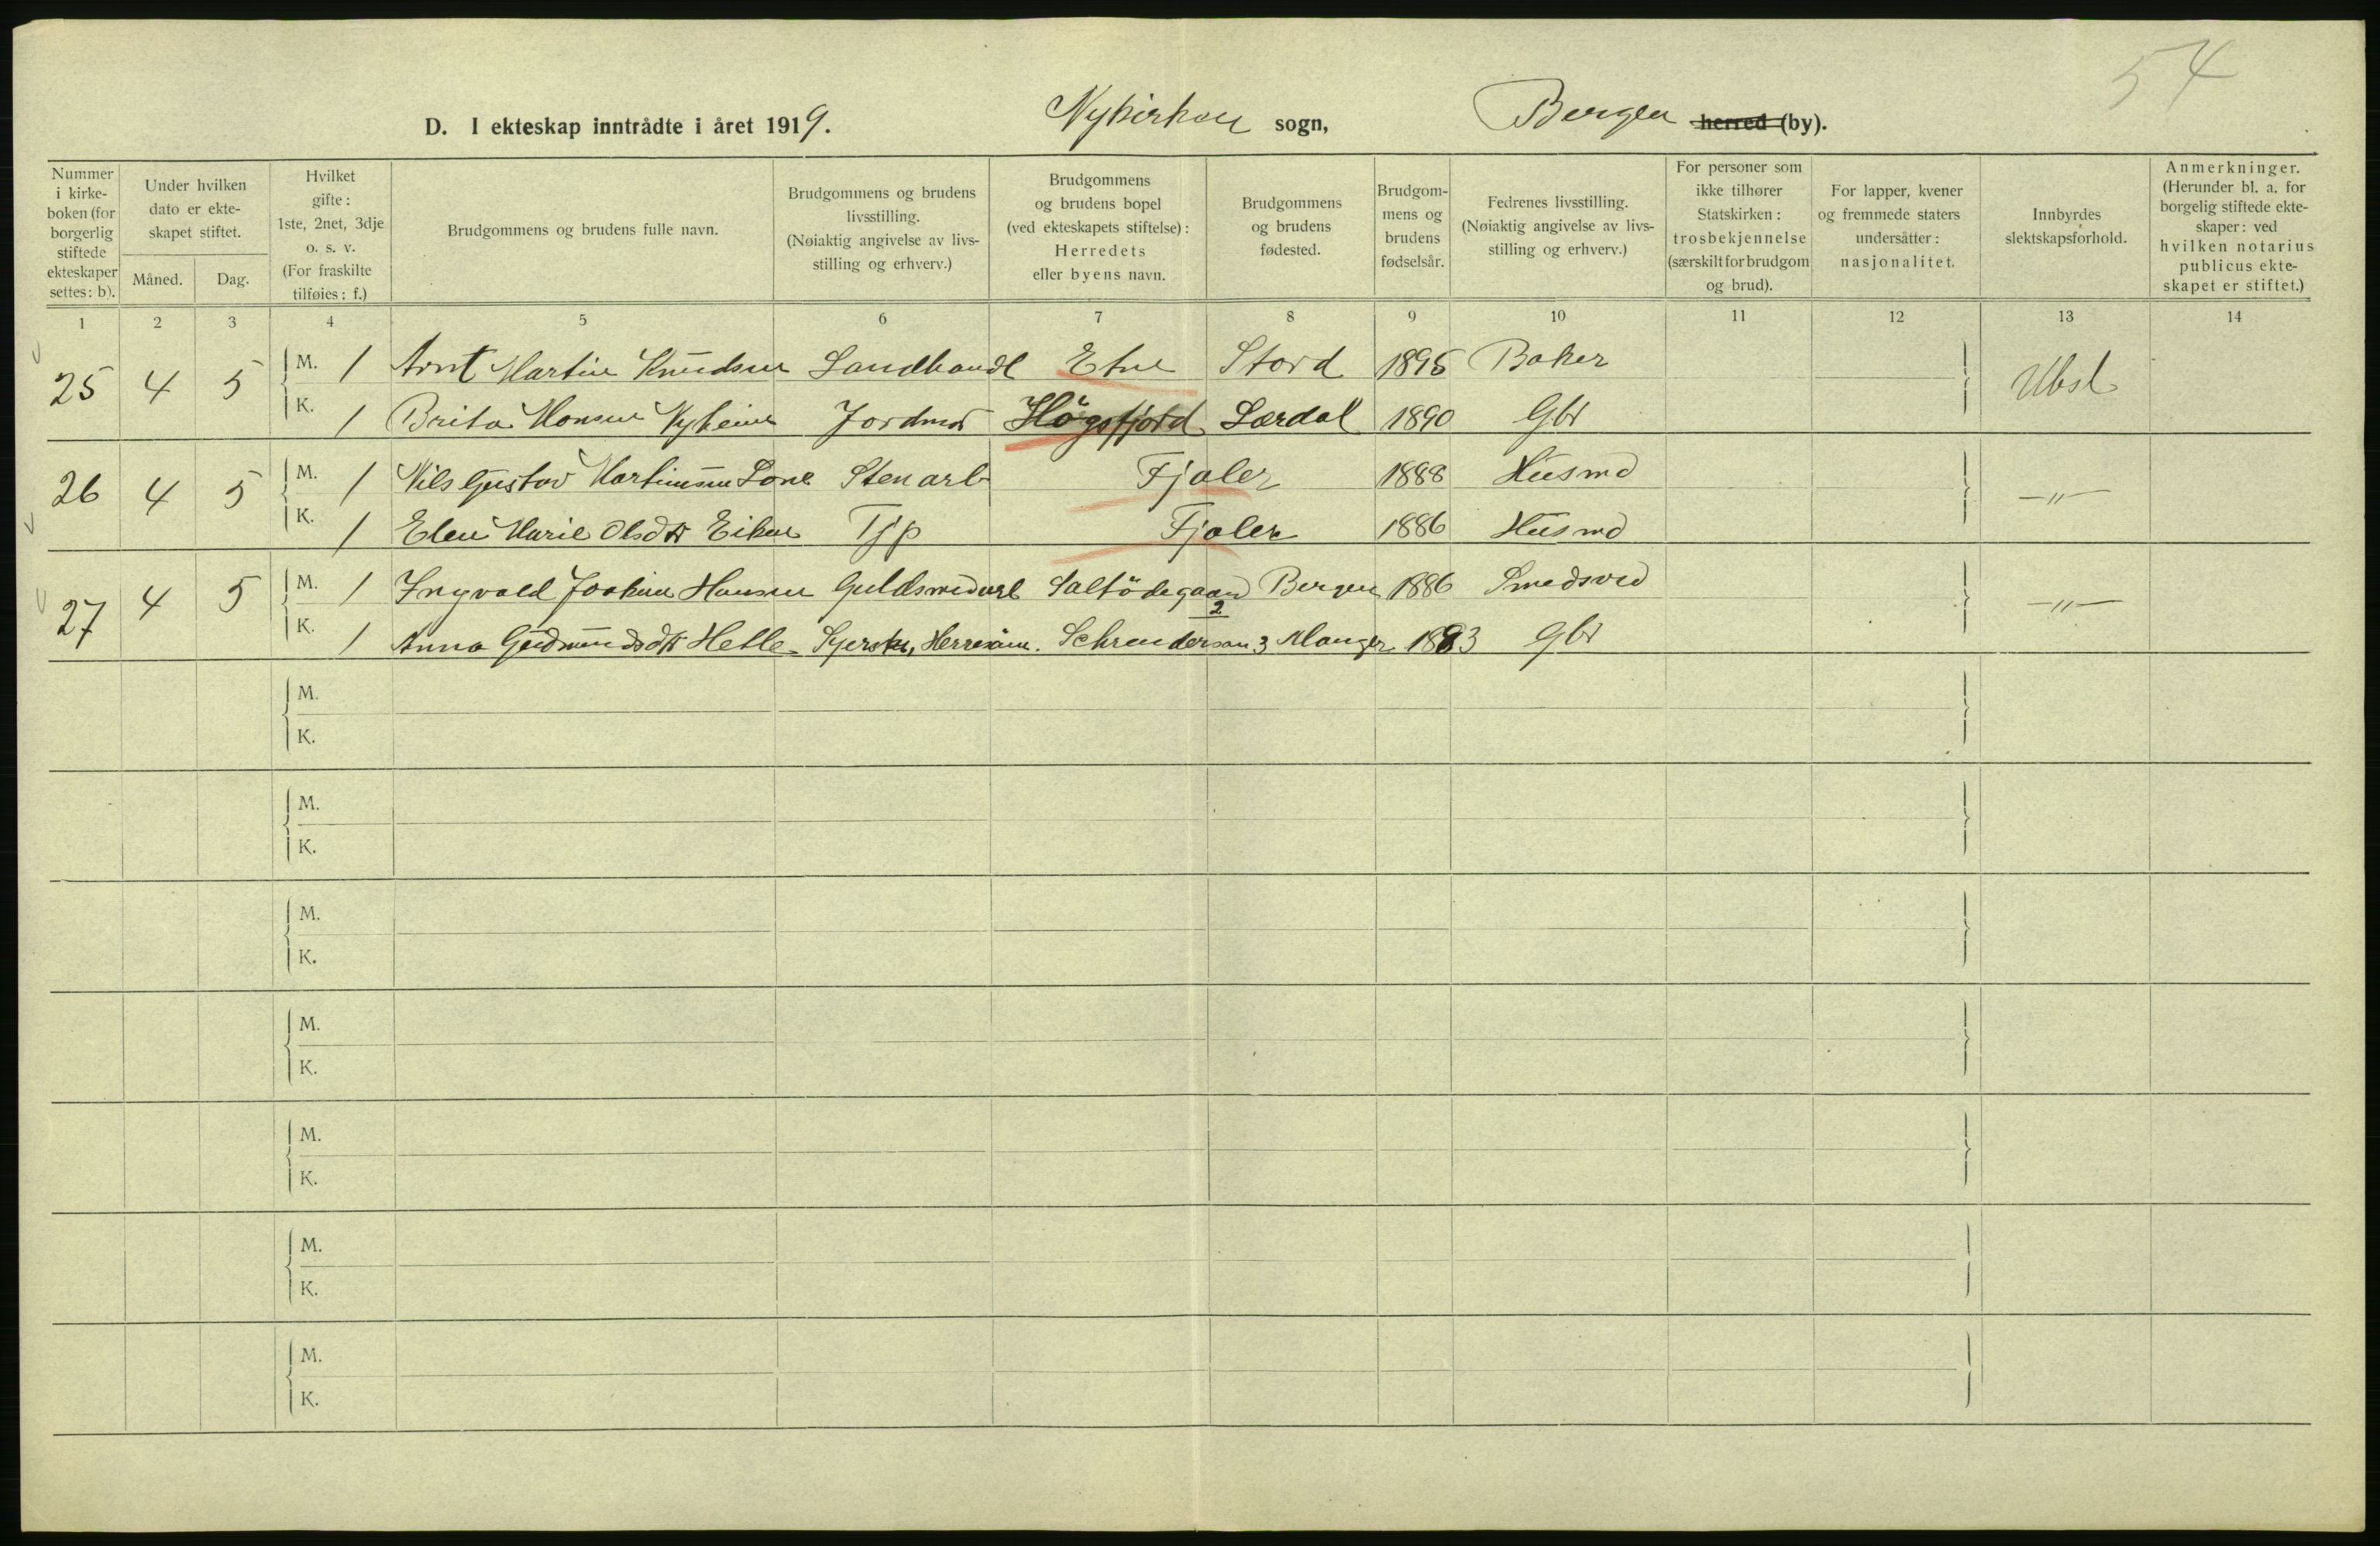 54
D. I ekteskap inntrådte i året 1919. Nykirken sogn, Bergen herred (by).
Nummer i kirkeboken (for borgerlig stiftede ekteskaper settes: b).
Under hvilken dato er ekteskapet stiftet.
Måned. Dag.
Hvilket gifte: 1ste, 2net, 3dje o. s. v. (For fraskilte tilføies: f.)
Brudgommens og brudens fulle navn.
Brudgommens og brudens livsstilling. (Nøiaktig angivelse av livsstilling og erhverv.)
Brudgommens og brudens bopel (ved ekteskapets stiftelse): Herredets eller byens navn.
Brudgommens og brudens fødested.
Brudgommens og brudens fødselsår.
Fedrenes livsstilling. (Nøiaktig angivelse av livsstilling og erhverv.)
For personer som ikke tilhører Statskirken: trosbekjennelse (særskilt for brudgom og brud).
For lapper, kvener og fremmede staters undersåtter: nasjonalitet.
Innbyrdes slektskapsforhold.
Anmerkninger. (Herunder bl. a. for borgelig stiftede ekteskaper: ved hvilken notarius publicus ekteskapet er stiftet.)
1 2 3 4 5 6 7 8 9 10 11 12 13 14
25 4 5 M. 1 Arnt Martin Knudsen Landhandl Etne Stord 1895 Baker Ubsl
K. 1 Brita Monsen Nyheim Jordmor Högsfjord Lærdal 1890 Gbr
26 4 5 M. 1 Nils Gustav Martinusen Lone Stenarb Fjaler 1888 Husmd —"—
K. 1 Elen Marie Olsdtr Eiken Tjp Fjaler 1886 Husmd
27 4 5 M. 1 Ingvald Joakim Hansen Guldsmedarb Saltödegaard 2 Bergen 1886 Smedsved —"—
K. 1 Anna Gudmundsdtr Helle Syerske, Schreudersan 3 Manger 1883 Gbr
M.
K.
M.
K.
M.
K.
M.
K.
M.
K.
M.
K.
M.
K.